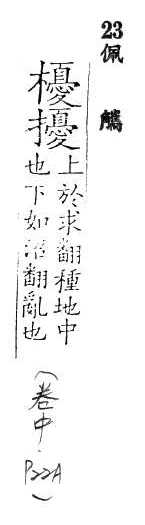 23 佩觿
櫌擾
上於求翻種地中
也下如沼翻亂也
(卷中 P22A)